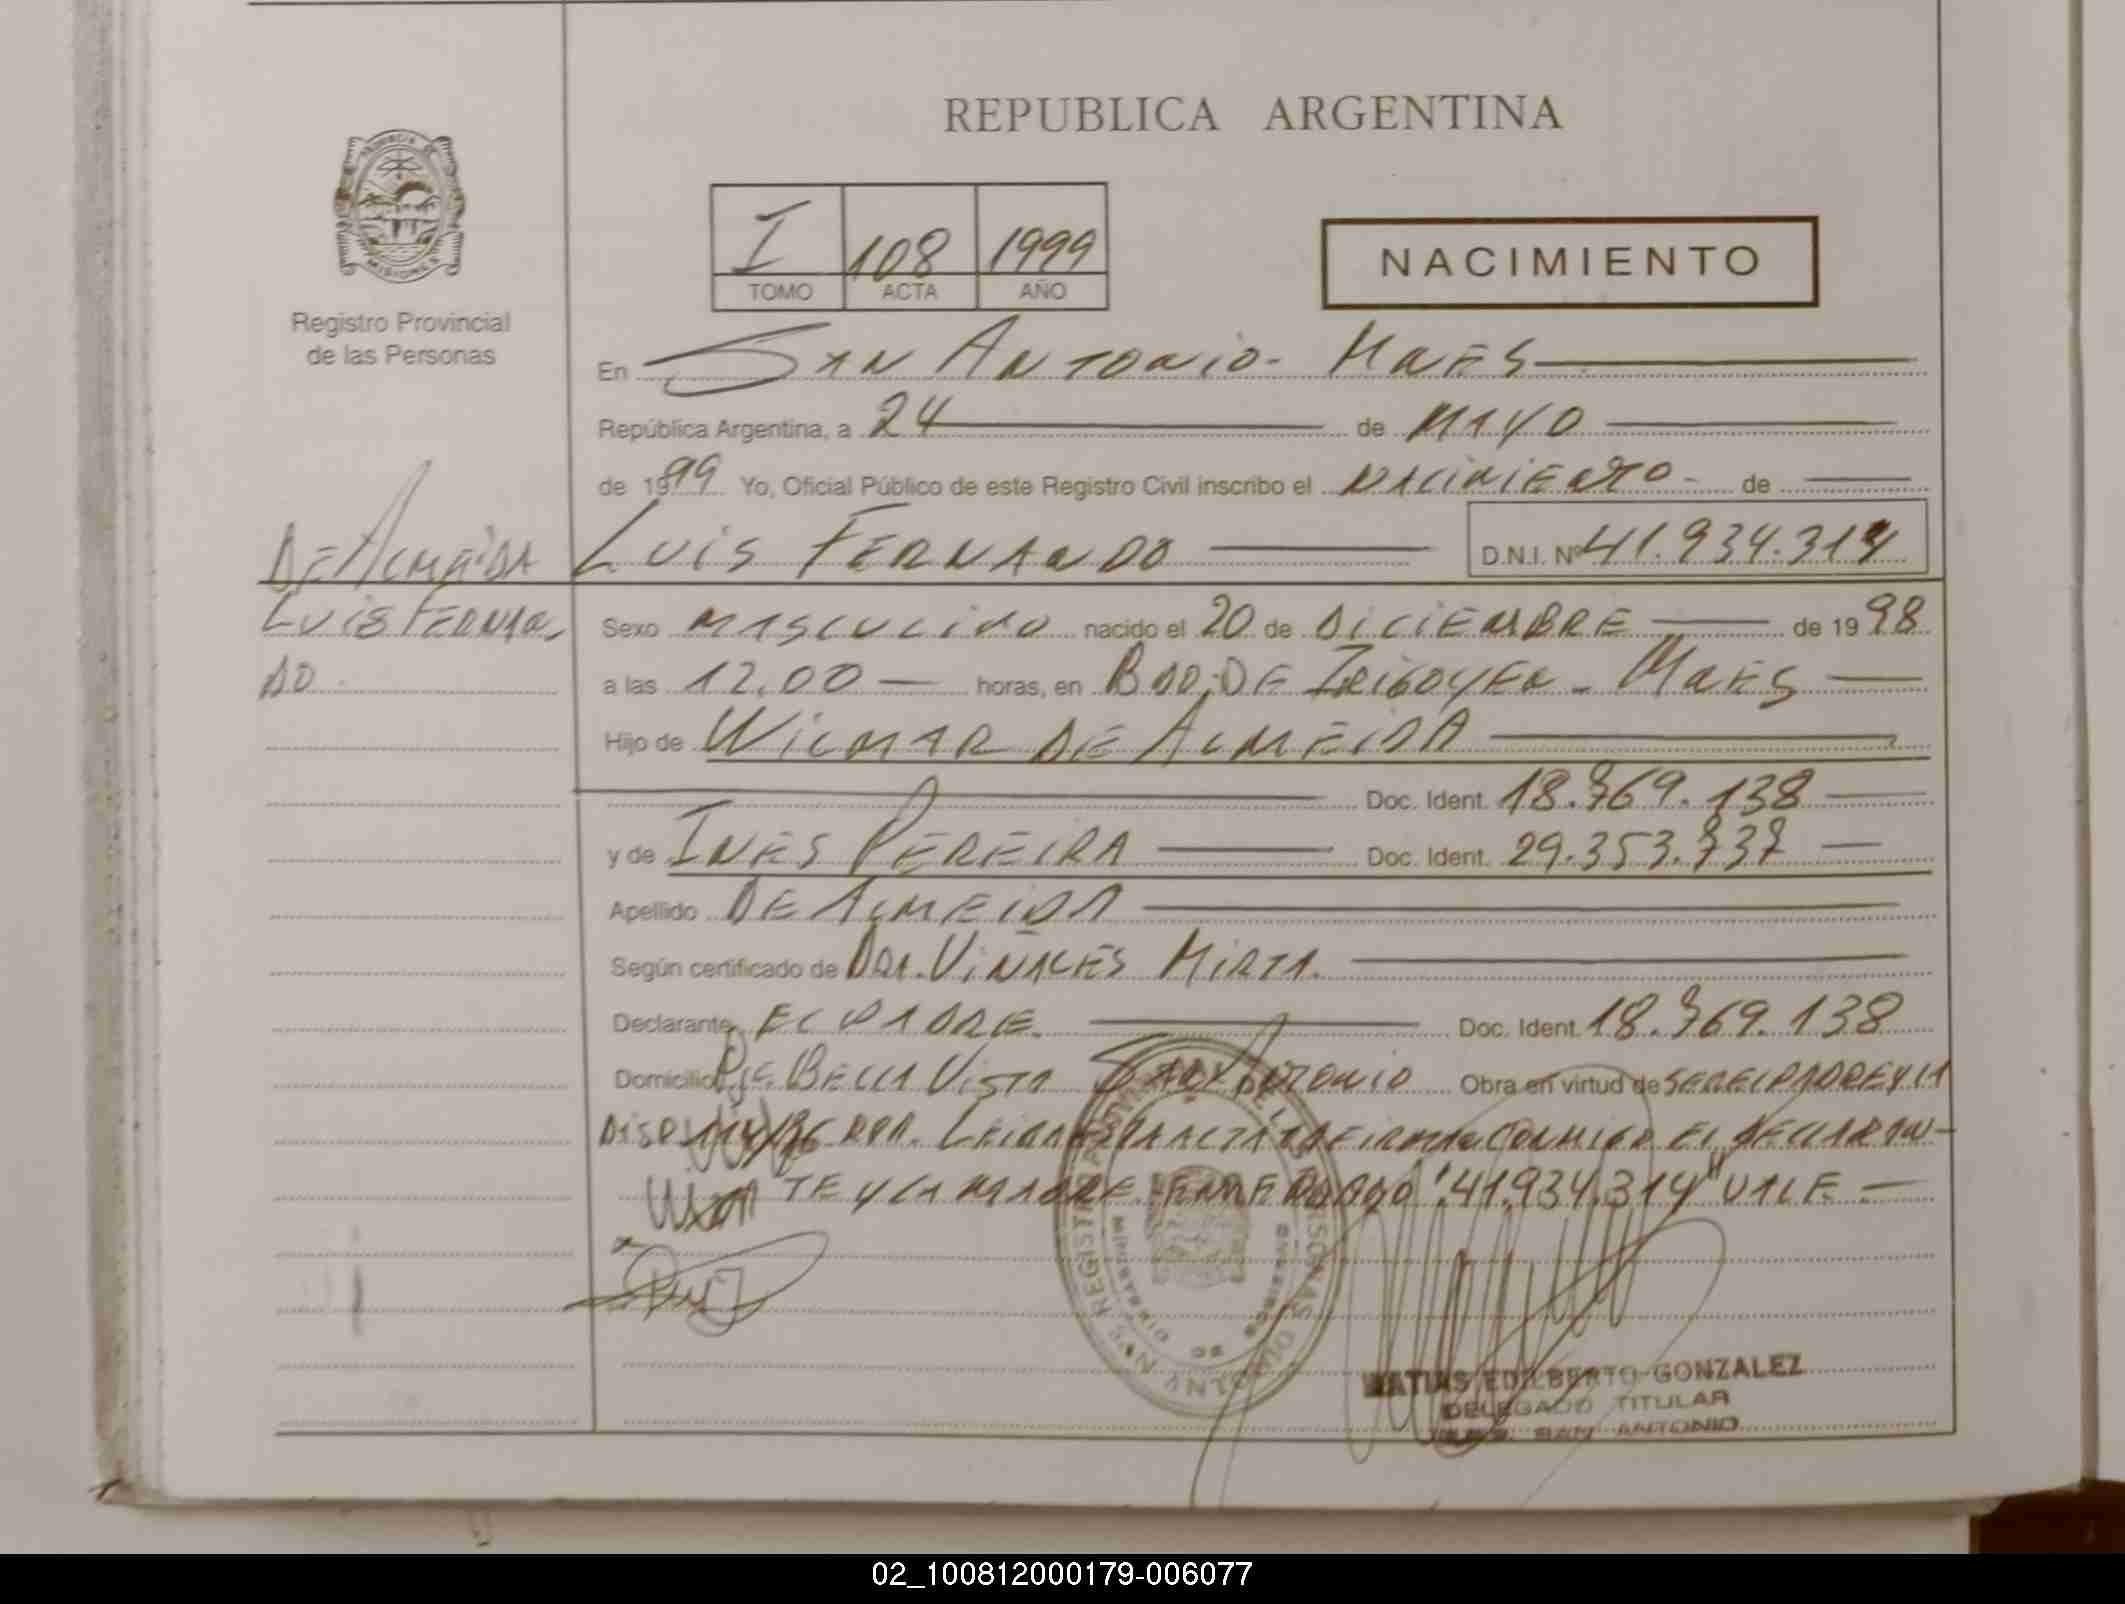 REPUBLICA ARGENTINA
PROVINCIA DE
MISIONES
Registro Provincial
de las Personas
I 108 1999
TOMO ACTA AÑO
NACIMIENTO
En SAN ANTONIO - MNES
República Argentina, a 24 de MAYO
de 1999 Yo, Oficial Público de este Registro Civil inscribo el NACIMIENTO - de
DE ALMEIDA
LUIS FERNAN
DO
LUIS FERNANDO D.N.I. Nº 41.934.314
Sexo MASCULINO nacido el 20 de DICIEMBRE de 1998
a las 12,00 horas, en BDO. DE IRIGOYEN - MNES
Hijo de WILMAR DE ALMEIDA
Doc. Ident. 18.769.138
y de INES PEREIRA Doc. Ident. 29.353.737
Apellido DE ALMEIDA
Según certificado de DRA. VIÑALES MIRTA.
Declarante EL PADRE. Doc. Ident. 18.769.138
Domicilio Pje. BELLA VISTA SAN ANTONIO Obra en virtud de SER EL PADRE Y LA
DISP. RPP. LEIDA EL ACTA LA FIRMAN CONMIGO EL DECLARAN-
TE Y LA MADRE. ENMENDADO "41.934.314" VALE. -
REGISTRO PROVINCIAL DE LAS PERSONAS
MINISTERIO DE GOBIERNO
MATIAS EDILBERTO GONZALEZ
DELEGADO TITULAR
SAN ANTONIO
02_100812000179-006077